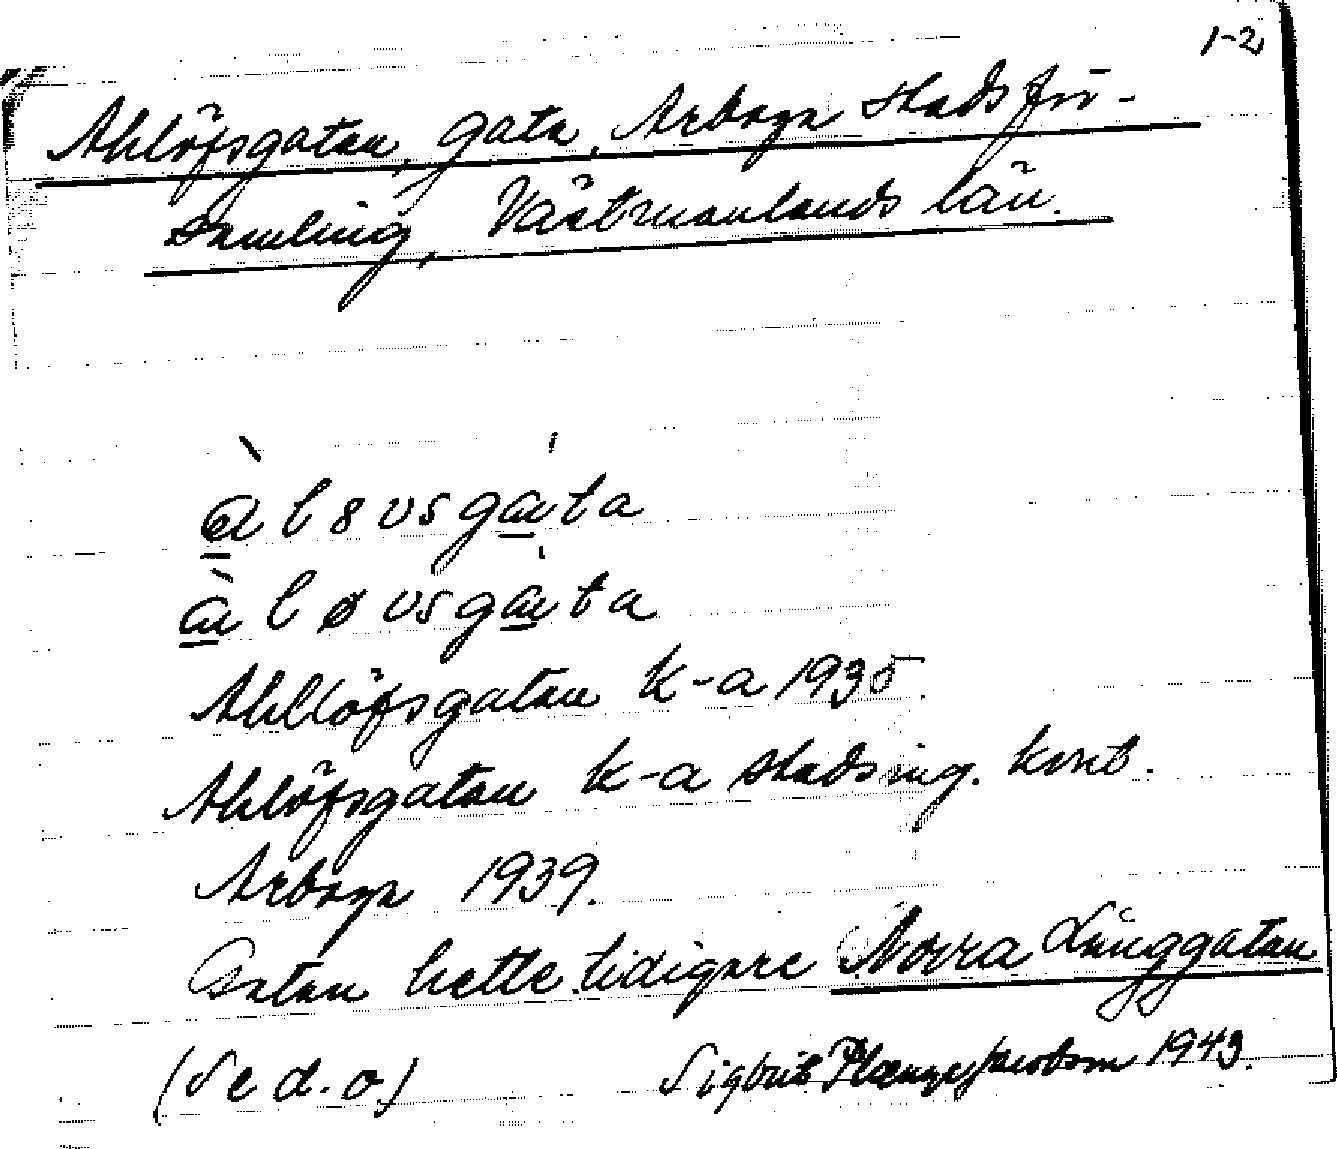 1-2
Ahlöfsgatan, gata, Arboga stadsför-
samling, Västmanlands län.
àlɞvsgáta
àløvsgáta
Ahllöfsgatan k-a 1935.
Ahlöfsgatan k-a stadsing. kont.
Arboga 1939.
Gatan hette tidigare Norra Långgatan
(Se d. o)
Sigbrit Plænge Jacobson 1943.